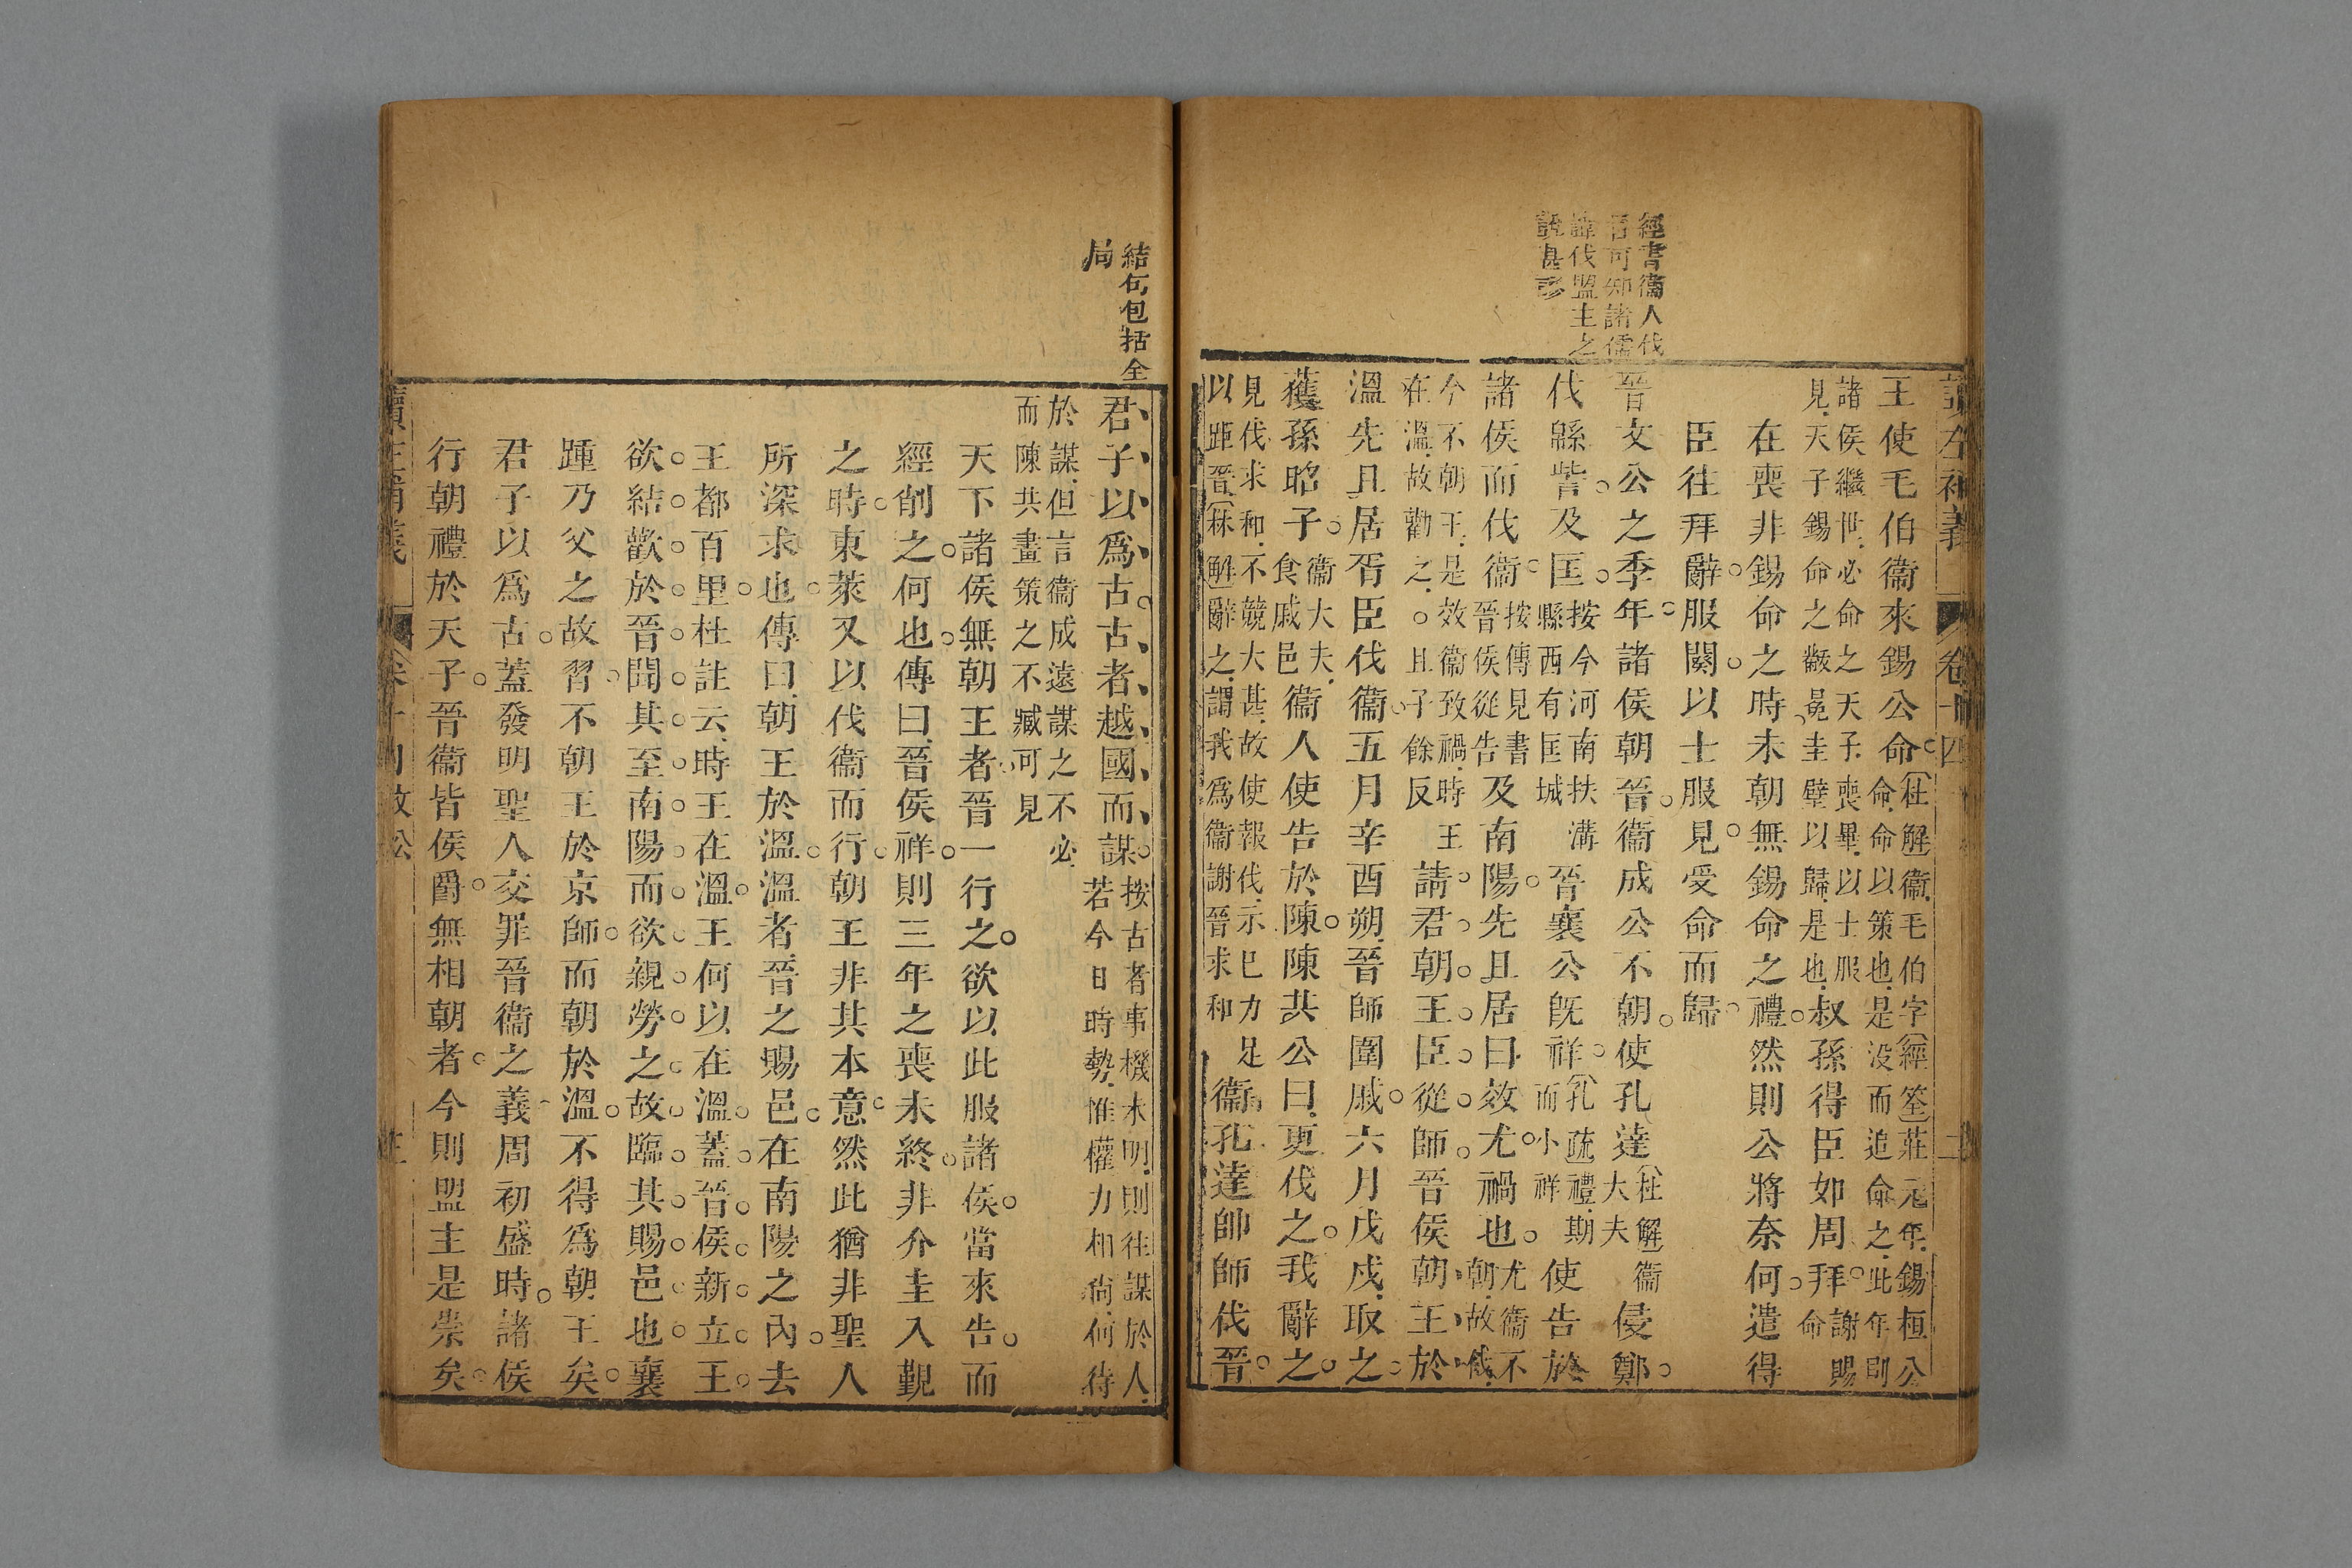 讀左補義
卷十四
二
經書衞人伐
晉可知諸儒
諱伐盟主之
說甚謬
王使毛伯衞來錫公命杜解衞毛伯字經筌莊元年錫桓公
命命以策也是没而追命之此年則
諸侯繼世必命之天子喪畢以士服
見天子錫命之黻冕圭璧以歸是也叔孫得臣如周拜謝賜
命
在喪非錫命之時未朝無錫命之禮然則公將奈何遣得
臣往拜辭服闋以士服見受命而歸
晉文公之季年諸侯朝晉衞成公不朝使孔達杜解衞
大夫侵鄭
伐緜訾及匡按今河南扶溝
縣西有匡城晉襄公既祥孔疏禮期
而小祥使告於
諸侯而伐衞按傳見書
晉侯從告及南陽先且居曰效尤禍也尤衞不
朝故伐
今不朝王是效衞致禍時王
在溫故勸之且子餘反請君朝王臣從師晉侯朝王於
溫先且居胥臣伐衞五月辛酉朔晉師圍戚六月戊戌取之
獲孫昭子衞大夫
食戚邑衞人使告於陳陳共公曰更伐之我辭之
見伐求和不競大甚故使報伐示己力足
以距晉林解辭之謂我爲衞謝晉求和衞孔達帥師伐晉
結句包括全
局
君子以爲古古者越國而謀按古者事機未明則往謀於人
若今日時勢惟權力相尙何待
於謀但言衞成遠謀之不必
而陳共畫策之不臧可見
天下諸侯無朝王者晉一行之欲以此服諸侯當來告而
經削之何也傳曰晉侯祥則三年之喪未終非介圭入覲
之時東萊又以伐衞而行朝王非其本意然此猶非聖人
所深求也傳曰朝王於溫溫者晉之賜邑在南陽之內去
王都百里杜註云時王在溫王何以在溫蓋晉侯新立王
欲結歡於晉聞其至南陽而欲親勞之故臨其賜邑也襄
踵乃父之故習不朝王於京師而朝於溫不得爲朝王矣
君子以爲古蓋發明聖人交罪晉衞之義周初盛時諸侯
行朝禮於天子晉衞皆侯爵無相朝者今則盟主是崇矣